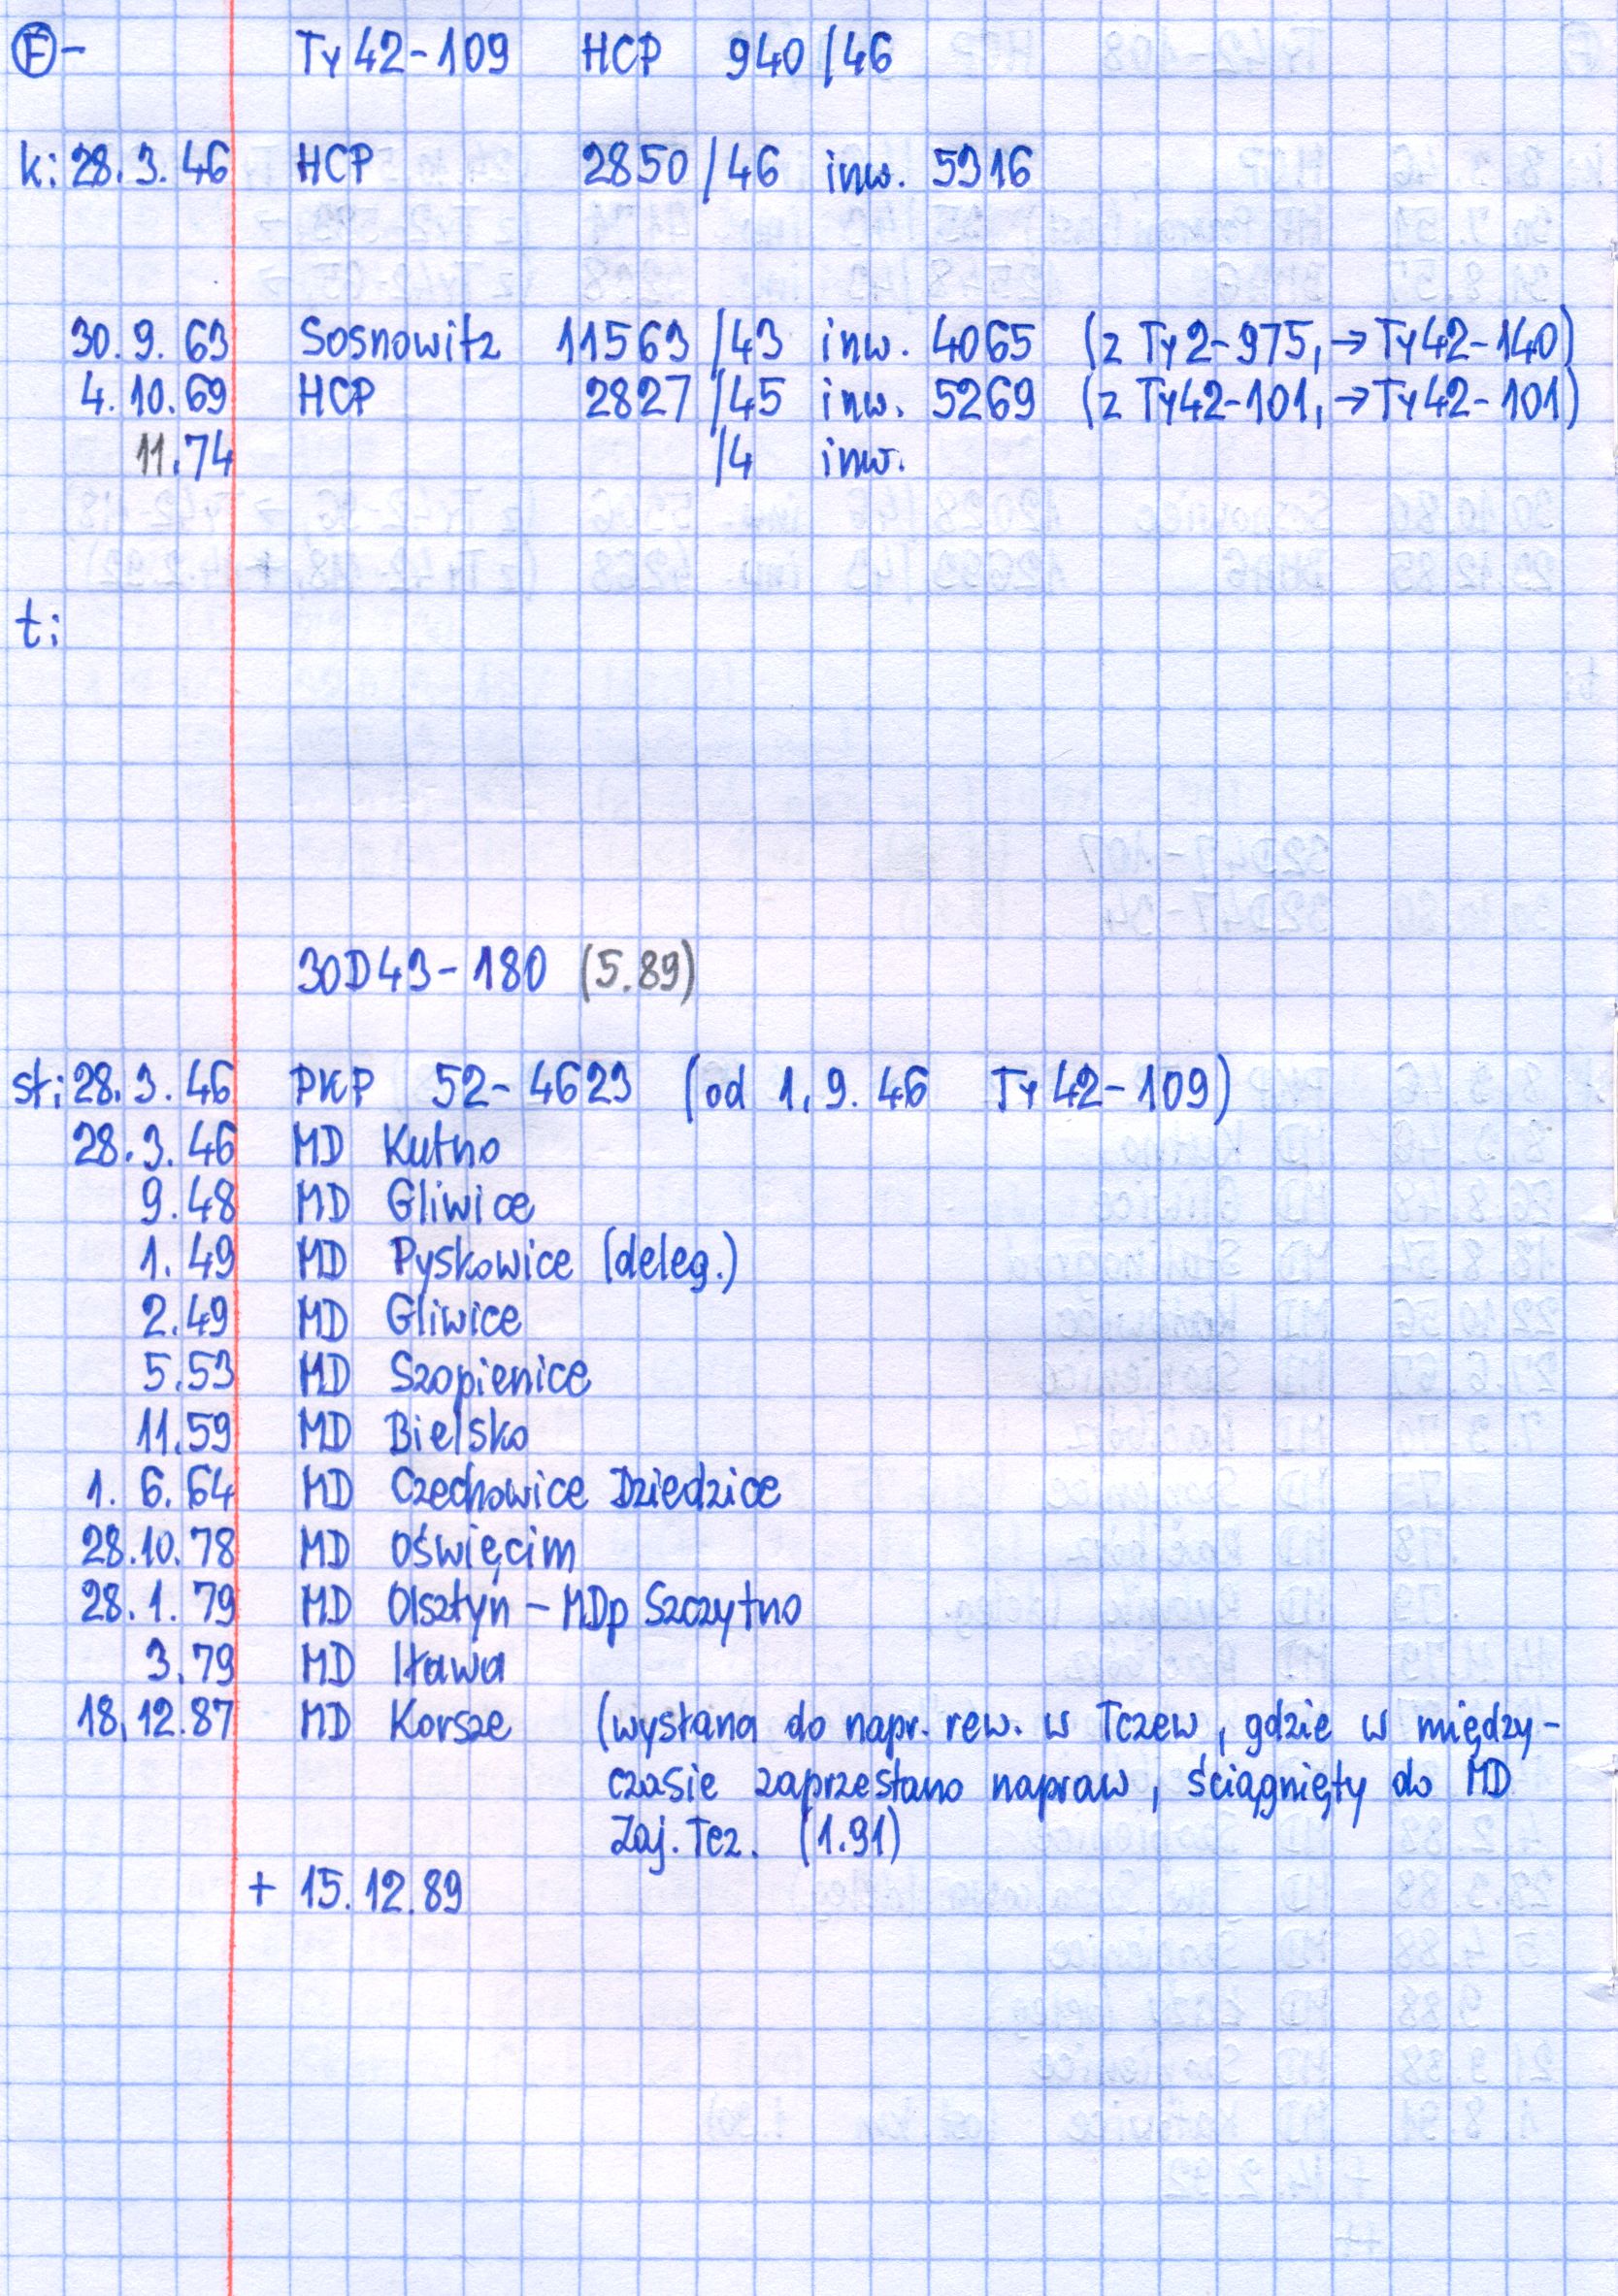 Ⓕ- Ty42-109 HCP 940/46
k: 28.3.46 HCP 2850/46 inw. 5316
30.9.63 Sosnowitz 11563/43 inw. 4065 (z Ty2-975, → Ty42-140)
4.10.69 HCP 2827/45 inw. 5269 (z Ty42-101, → Ty42-101)
11.74 /4 inw.
t:
30D43-180 (5.89)
st: 28.3.46 PKP 52-4623 (od 1.9.46 Ty42-109)
28.3.46 MD Kutno
9.48 MD Gliwice
1.49 MD Pyskowice (deleg.)
2.49 MD Gliwice
5.53 MD Szopienice
11.59 MD Bielsko
1.6.64 MD Czechowice Dziedzice
28.10.78 MD Oświęcim
28.1.79 MD Olsztyn - MDp Szczytno
3.79 MD Iława
18.12.87 MD Korsze (wysłana do napr. rew. w Tczew, gdzie w między-
czasie zaprzestano napraw, ściągnięty do MD
Zaj. Tcz. (1.91)
+ 15.12.89